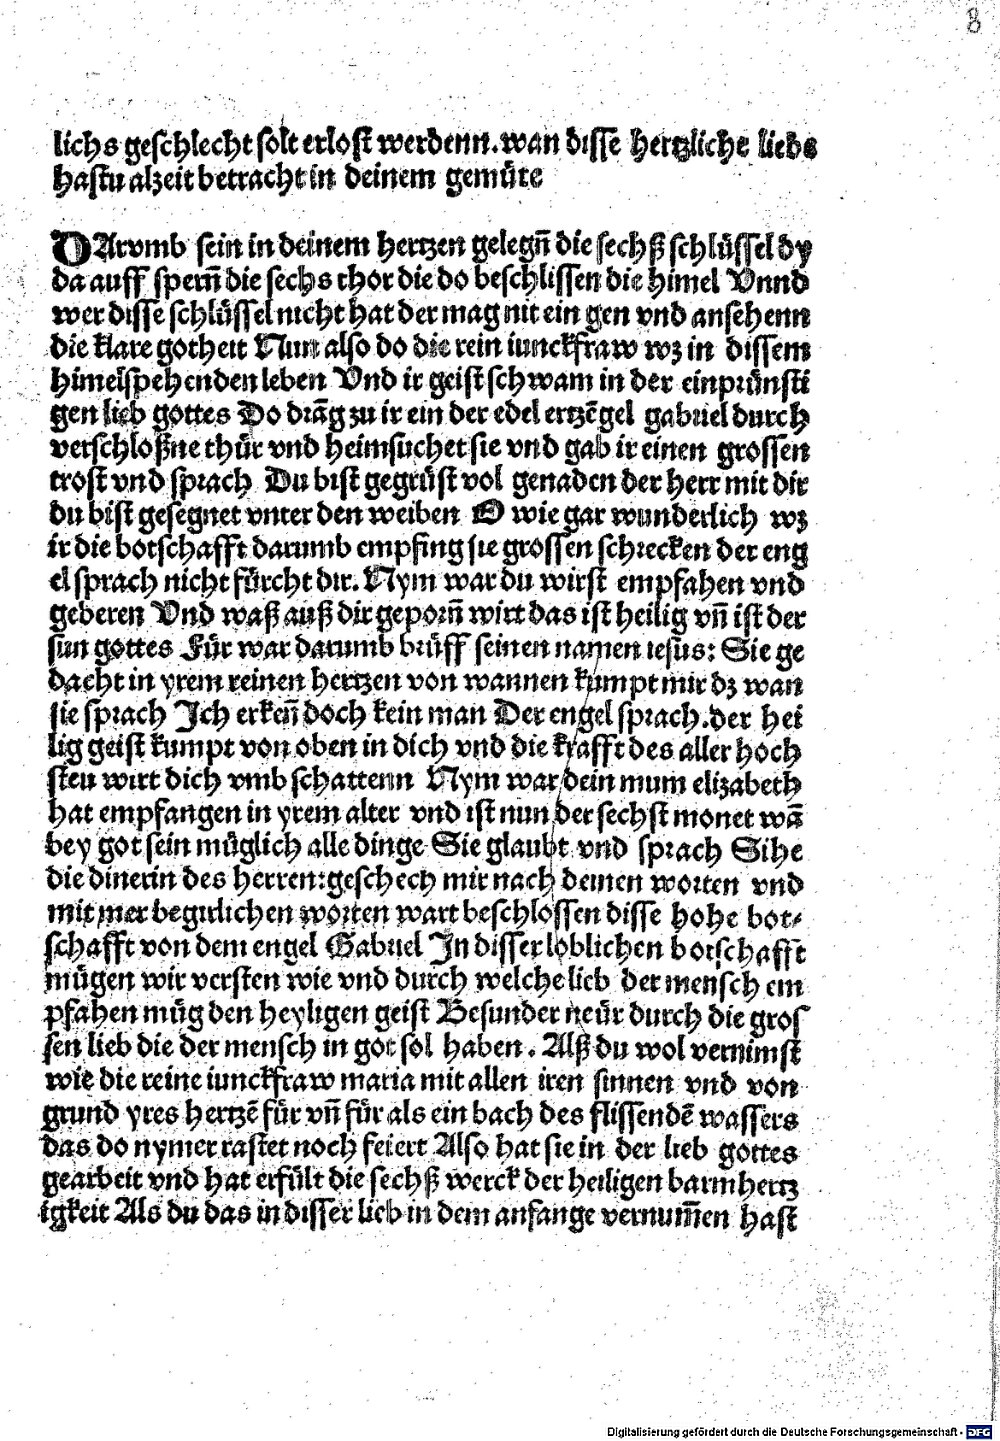 8
lichs geschlecht solt erlost werdenn. wan disse hertzliche liebe
hastu alzeit betracht in deinem gemüte
DArvmb sein in deinem hertzen gelegn̄ die sechß schlüssel dy
da auff spern̄ die sechs thor die do beschlissen die himel Vnnd
wer disse schlüssel nicht hat der mag nit ein gen vnd ansehenn
die klare gotheit Nun also do die rein iunckfraw wz in dissem
himelspehenden leben Vnd ir geist schwam in der einprünsti
gen lieb gottes Do drāg zu ir ein der edel ertzēgel gabriel durch
verschloßne thür vnd heimsuchet sie vnd gab ir einen grossen
trost vnd sprach Du bist gegrüst vol genaden der herr mit dir
du bist gesegnet vnter den weiben O wie gar wunderlich wz
ir die botschafft darumb empfing sie grossen schrecken der eng
el sprach nicht fürcht dir. Nym war du wirst empfahen vnd
geberen Vnd waß auß dir geporn̄ wirt das ist heilig vn̄ ist der
sun gottes Für war darumb brüff seinen namen iesus: Sie ge
dacht in yrem reinen hertzen von wannen kumpt mir dz wan
sie sprach Ich erken̄ doch kein man Der engel sprach. der hei
lig geist kumpt von oben in dich vnd die krafft des aller hoch
sten wirt dich vmb schattenn Nym war dein mum elizabeth
hat empfangen in yrem alter vnd ist nun der sechst monet wā
bey got sein müglich alle dinge Sie glaubt vnd sprach Sihe
die dinerin des herren: geschech mir nach deinen worten vnd
mit iner begirlichen worten wart beschlossen disse hohe bot⸗
schafft von dem engel Gabriel In disser loblichen botschafft
mügen wir versten wie vnd durch welche lieb der mensch em
pfahen müg den heyligen geist Besunder neür durch die gros
sen lieb die der mensch in got sol haben. Alß du wol vernimst
wie die reine iunckfraw maria mit allen iren sinnen vnd von
grund yres hertzē für vn̄ für als ein bach des flissendē wassers
das do nymer rastet noch feiert Also hat sie in der lieb gottes
gearbeit vnd hat erfült die sechß werck der heiligen barmhertz
igkeit Als du das in disser lieb in dem anfange vernum̄en hast
Digitalisierung gefördert durch die Deutsche Forschungsgemeinschaft - DFG